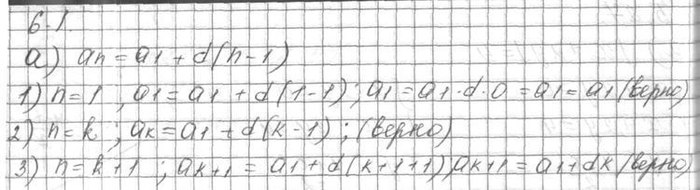 6.1.
а) an = a1 + d(n-1)
1) n=1 ; a1 = a1 + d(1-1) ; a1 = a1 · d · 0 = a1 = a1 (верно)
2) n=k ; ak = a1 + d(k-1) ; (верно)
3) n=k+1 ; ak+1 = a1 + d(k+1+1) ak+1 = a1 + dk (верно)